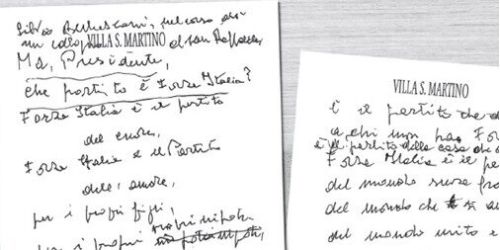 Silvio Berlusconi, nel corso di
un colloquio al San Raffaele,
VILLA S. MARTINO
Ma, Presidente,
che partito è Forza Italia?
Forza Italia è il partito
del cuore,
Forza Italia è il Partito
dell'amore,
per i propri figli,
per i propri nipoti,
VILLA S. MARTINO
è il partito che
a chi non ha
è il partito della casa che
Forza Italia è il
del mondo senza
del mondo che
del mondo unito e